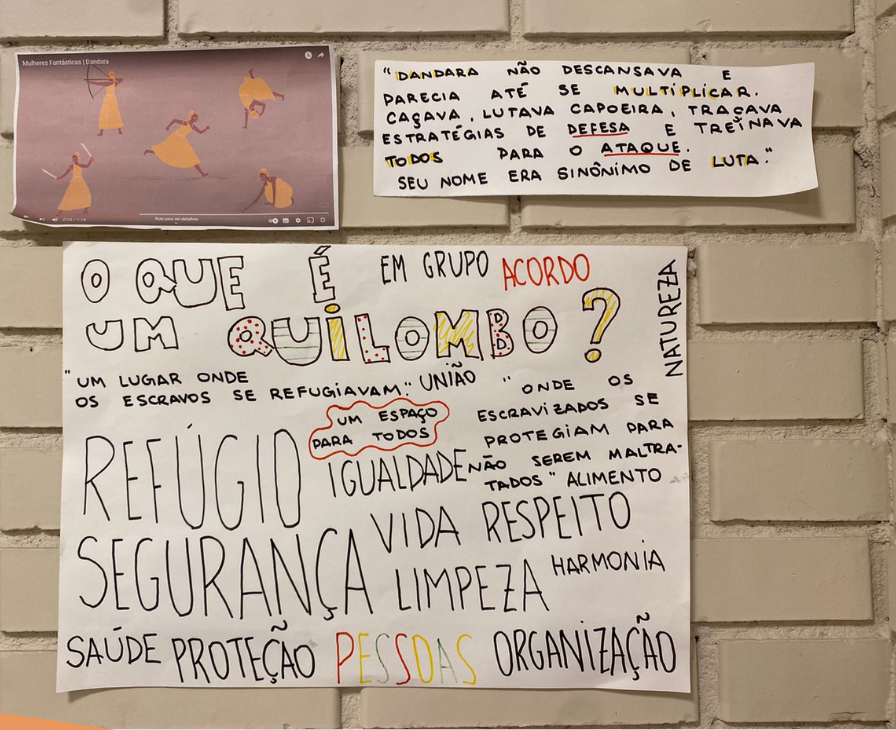 Mulheres Fantásticas | Dandara
"DANDARA NÃO DESCANSAVA E
PARECIA ATÉ SE MULTIPLICAR.
CAÇAVA, LUTAVA CAPOEIRA, TRAÇAVA
ESTRATÉGIAS DE DEFESA E TREINAVA
TODOS PARA O ATAQUE.
SEU NOME ERA SINÔNIMO DE LUTA."
O QUE É
UM QUILOMBO?
EM GRUPO ACORDO
NATUREZA
"UM LUGAR ONDE
OS ESCRAVOS SE REFUGIAVAM."
UNIÃO
"ONDE OS
ESCRAVIZADOS SE
PROTEGIAM PARA
NÃO SEREM MALTRA-
TADOS"
ALIMENTO
UM ESPAÇO
PARA TODOS
REFÚGIO
IGUALDADE
VIDA RESPEITO
SEGURANÇA
LIMPEZA
HARMONIA
SAÚDE PROTEÇÃO PESSOAS ORGANIZAÇÃO